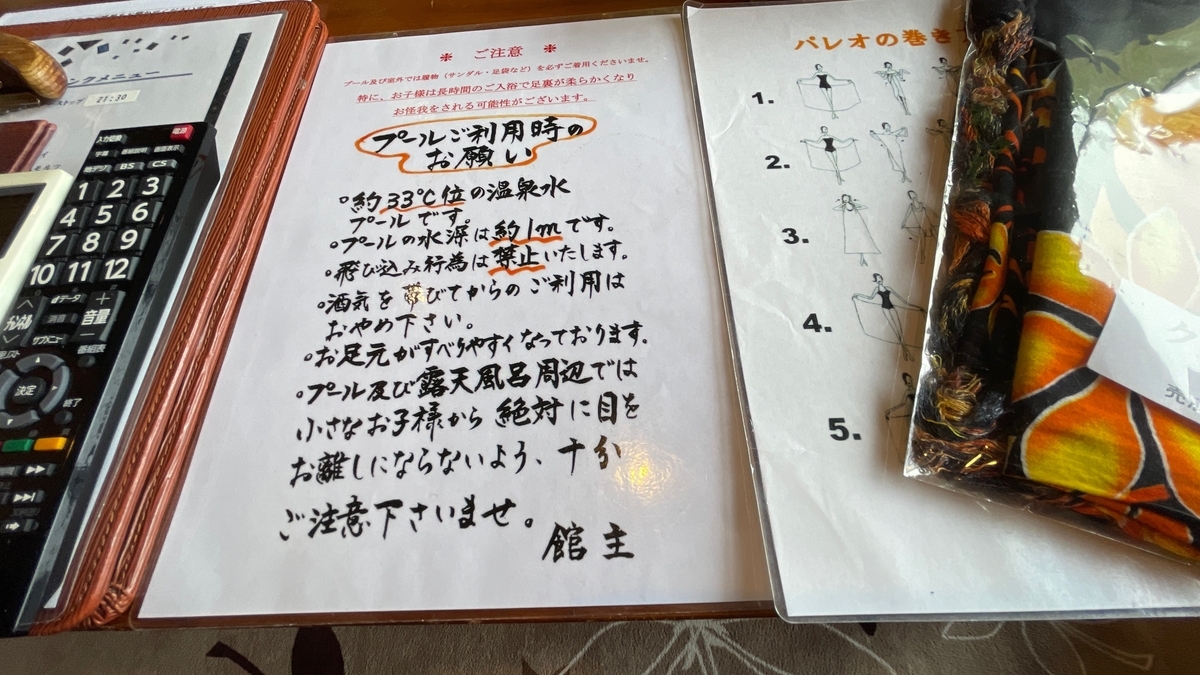 ンクメニュー
21:30
入力切換
電源
字幕
番組説明
画面表示
地デジ
BS
CS
1 2 3
4 5 6
7 8 9
10 11 12
dデータ
消音
チャンネル
＋
音量
サブメニュー
番組表
決定
終了
※ ご注意 ※
プール及び室外では履物（サンダル・足袋など）を必ずご着用くださいませ。
特に、お子様は長時間のご入浴で足裏が柔らかくなり
お怪我をされる可能性がございます。
プールご利用時の
お願い
◦約33℃位の温泉水
プールです。
◦プールの水深は約1mです。
◦飛び込み行為は禁止いたします。
◦酒気を帯びてからのご利用は
おやめ下さい。
◦お足元がすべりやすくなっております。
◦プール及び露天風呂周辺では
小さなお子様から絶対に目を
お離しにならないよう、十分
ご注意下さいませ。
館主
パレオの巻き
1.
2.
3.
4.
5.